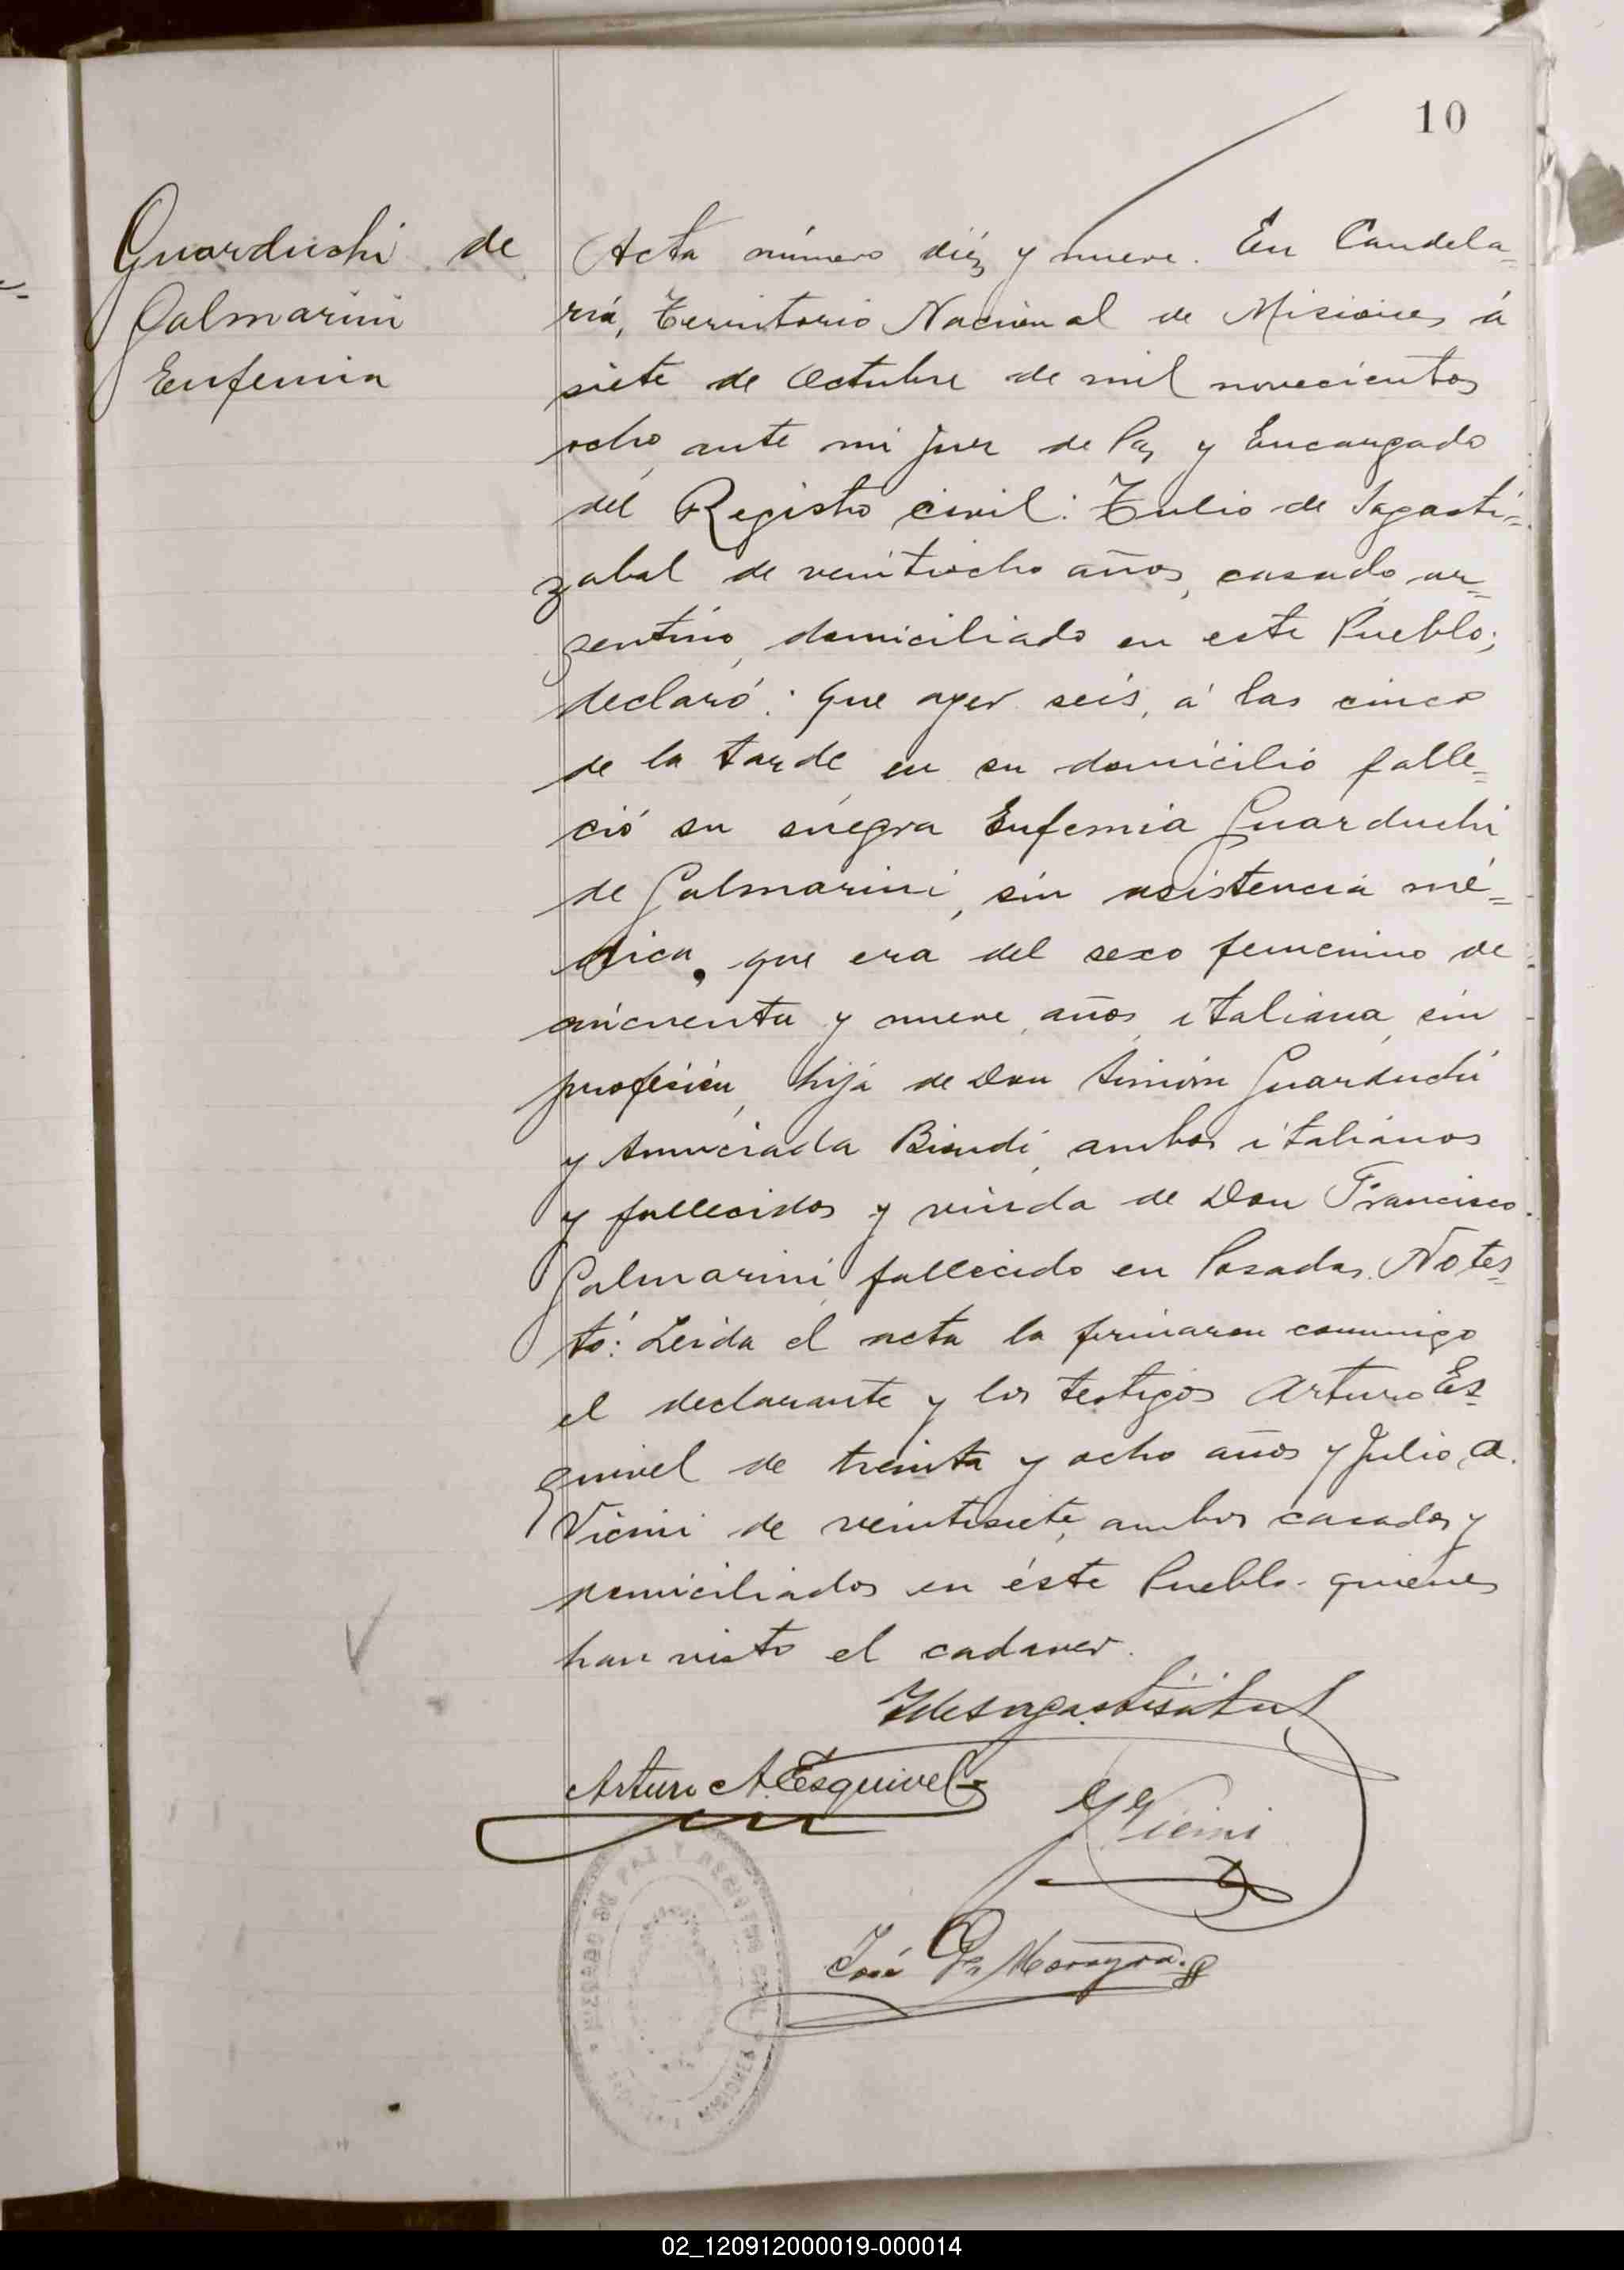 10
Guarduchi de
Galmarini
Eufemia
Acta número diéz y nueve. En Candela=
ria, Territorio Nacional de Misiones, á
siete de Octubre de mil novecientos
ocho, ante mi Juez de Paz y Encargado
del Registro civil: Tulio de Sagasti=
zabal de veintiocho años, casado, ar=
gentino, domiciliado en este Pueblo;
declaró: Que ayer seis, á las cinco
de la tarde en su domicilio falle=
ció su suegra Eufemia Guarduchi
de Galmarini, sin asistencia mé=
dica, que era del sexo femenino de
cincuenta y nueve años, italiana, sin
profesión, hija de Don Simón Guarduchi
y Anunciada Biondi, ambos italianos
y fallecidos y viuda de Don Francisco
Galmarini fallecido en Posadas. No tes=
tó: Leida el acta la firmaron conmigo
el declarante y los testigos Arturo Es=
quivel de treinta y ocho años y Julio A.
Vicini de veintisiete, ambos casados y
domiciliados en éste Pueblo quienes
han visto el cadaver.
TdeSagastizábal
Arturo A. Esquivel
JVicini
José
02_120912000019-000014